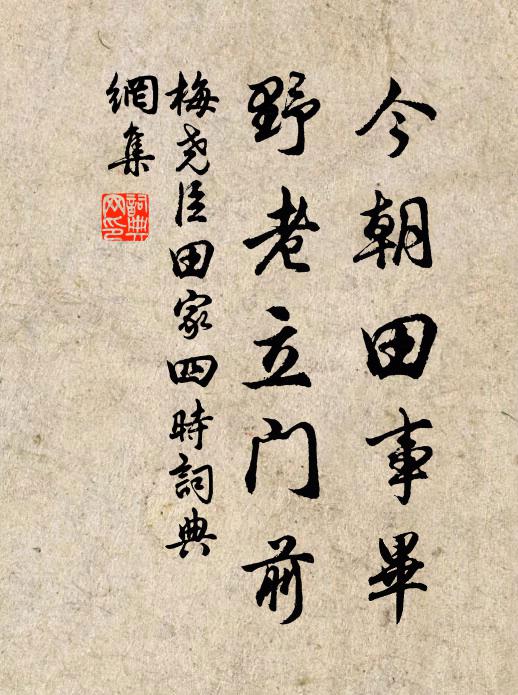 今朝田事畢
野老立門前
梅堯臣田家四時詞典
網集
詞典
网印